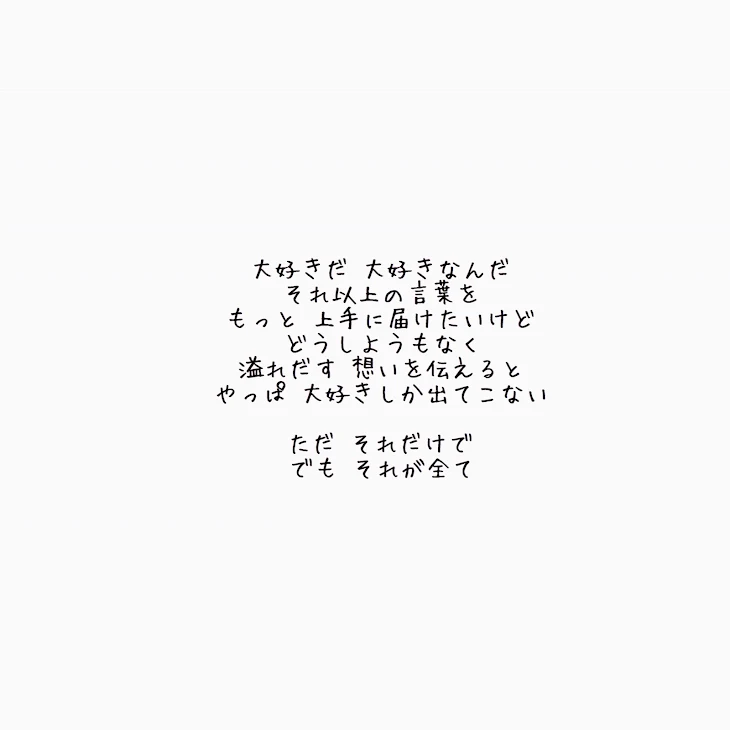 大好きだ 大好きなんだ
それ以上の言葉を
もっと 上手に届けたいけど
どうしようもなく
溢れだす 想いを伝えると
やっぱ 大好きしか出てこない
ただ それだけで
でも それが全て